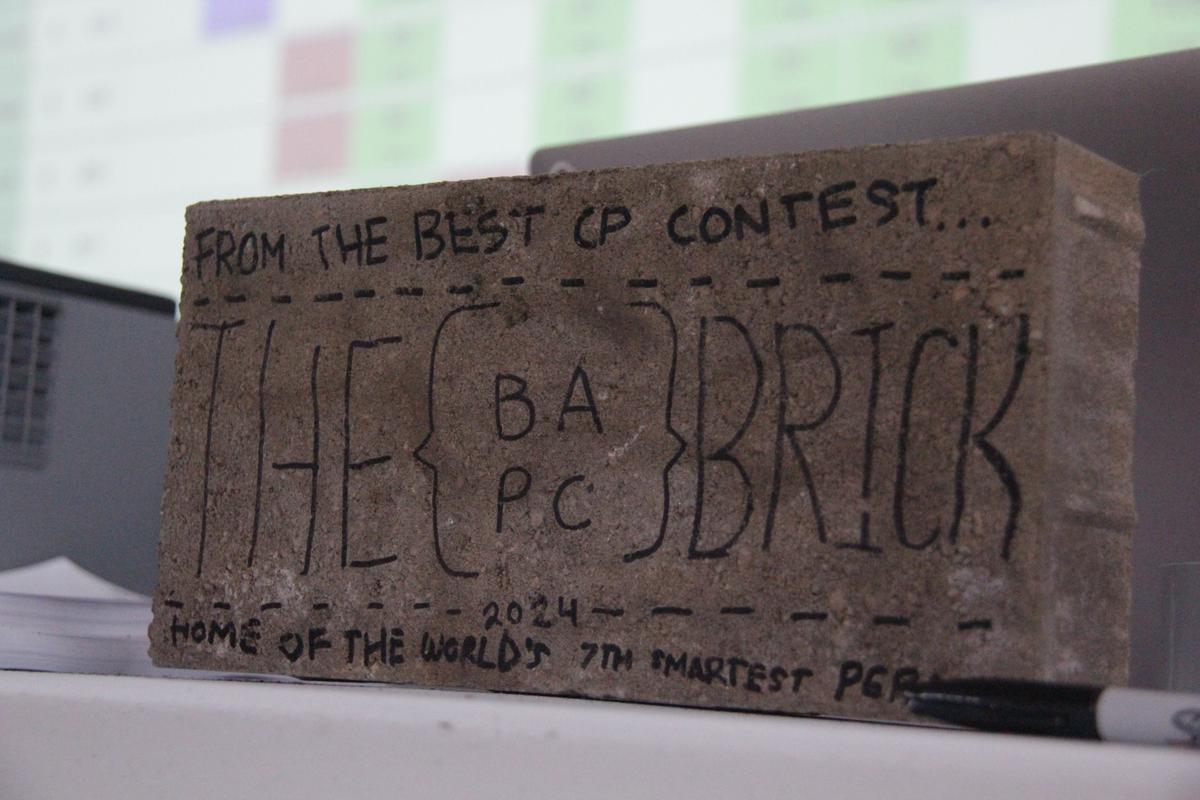 FROM THE BEST CP CONTEST...
THE { BA PC } BRICK
2024
HOME OF THE WORLD'S 7TH SMARTEST